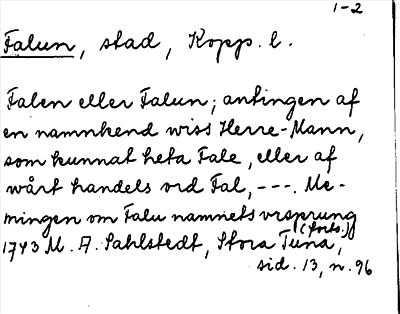 1-2
Falun, stad, Kopp. l.
Falen eller Falun; antingen af
en namnkend wiss Herre-Mann,
som kunnat heta Fale, eller af
wårt handels ord Fal, ---. Me-
ningen om Falu namnets ursprung
(forts.)
1743 M. A. Sahlstedt, Stora Tuna,
sid. 13, n. 96